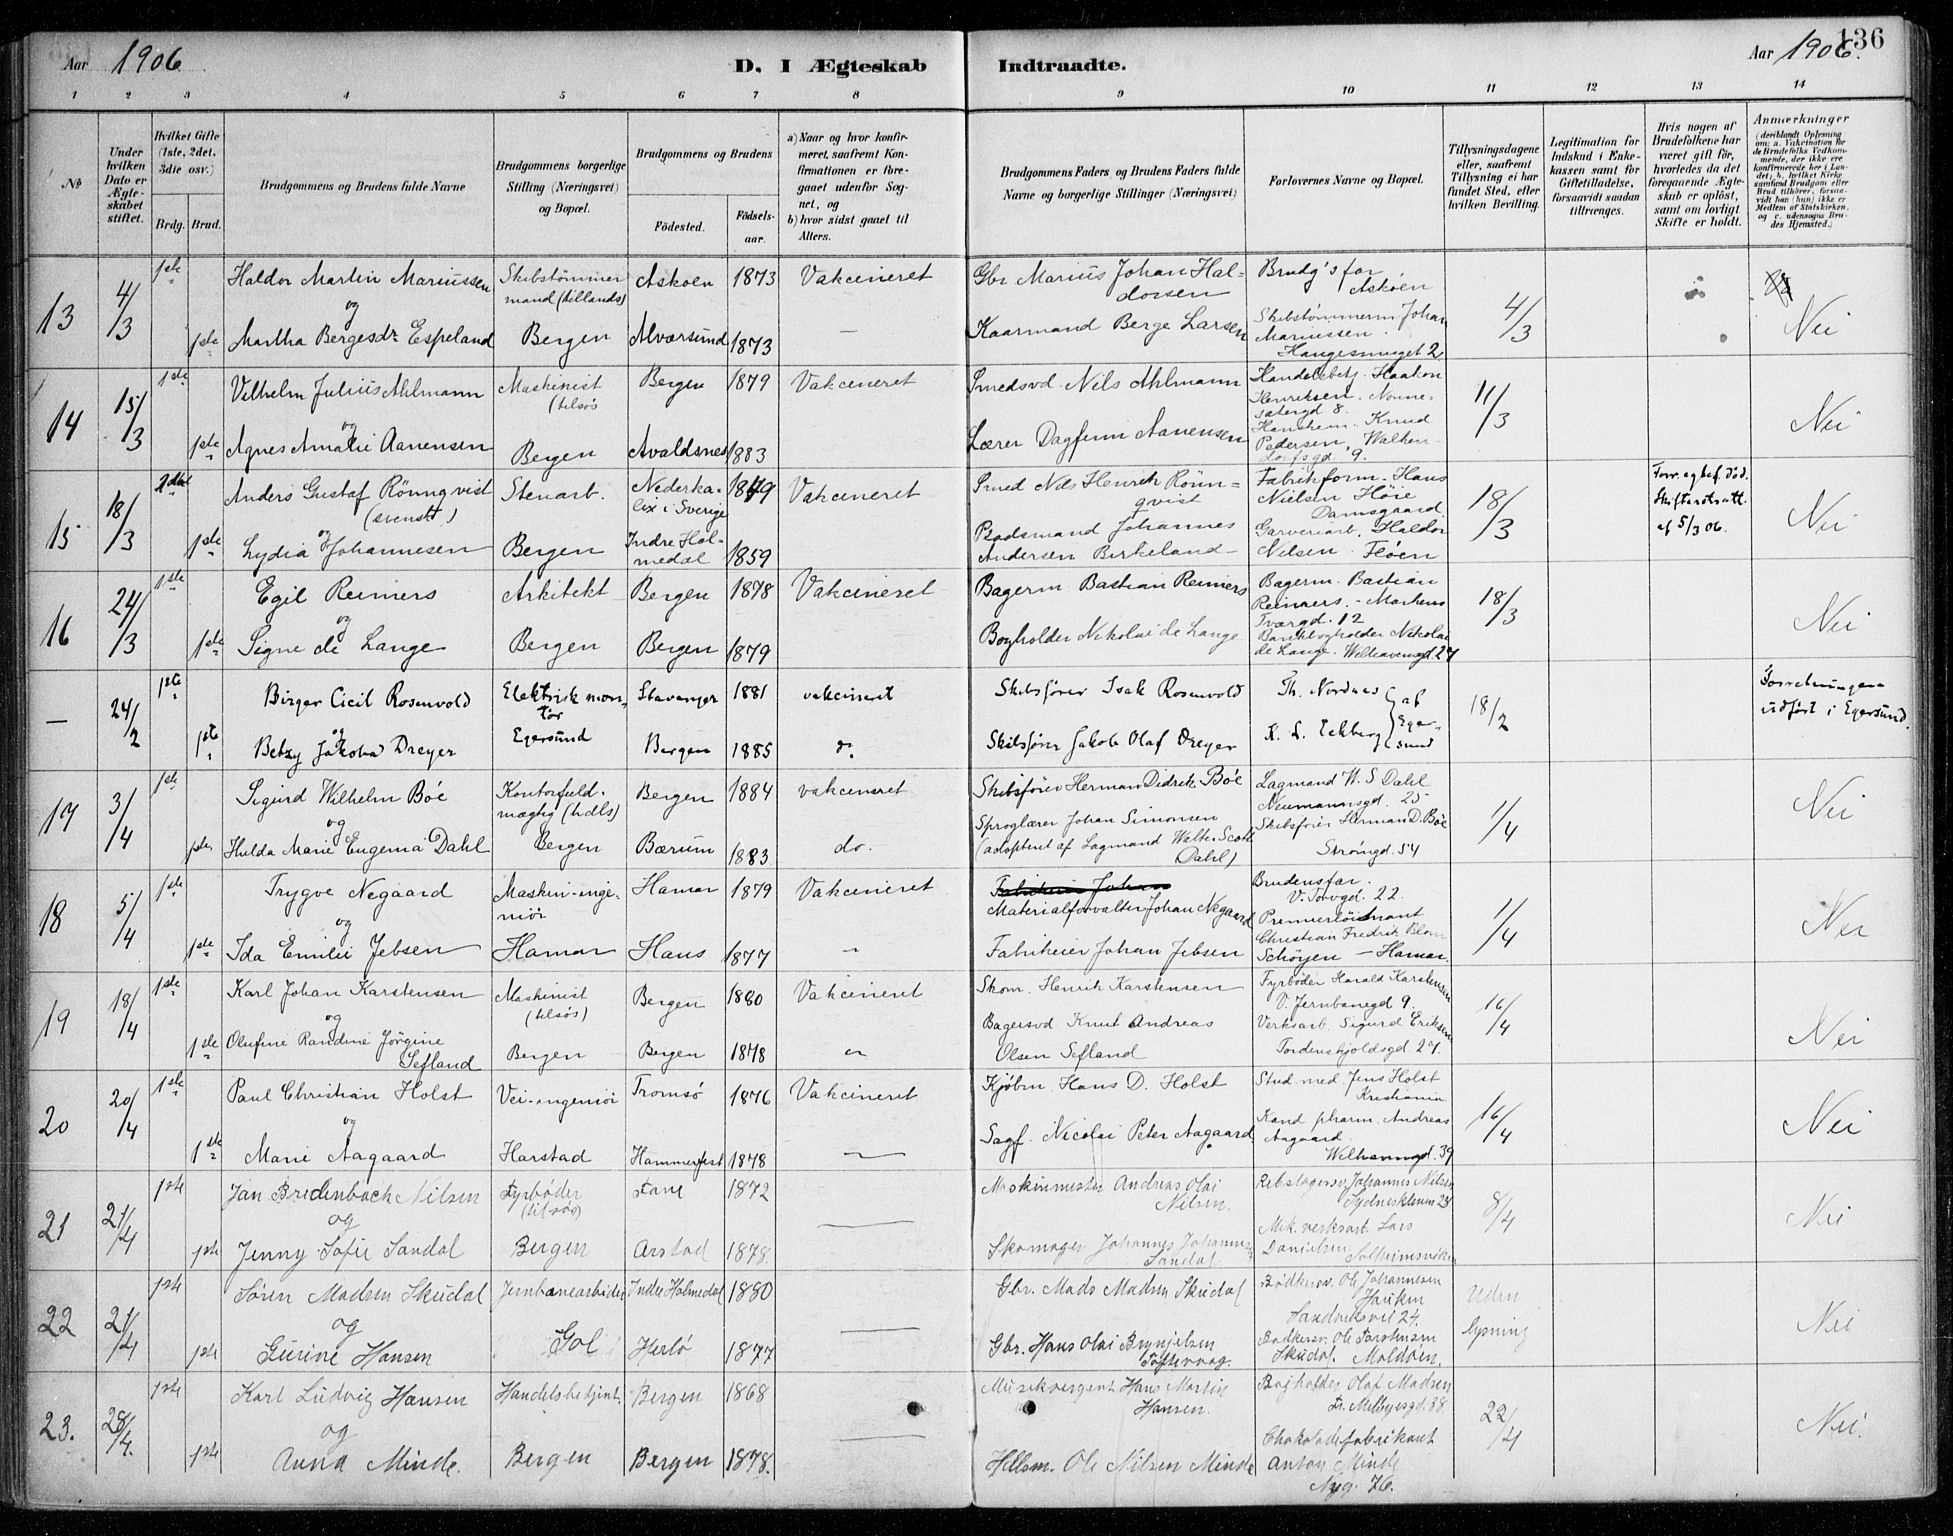 136
Aar 1906
D. I Ægteskab
Indtraadte.
Aar 1906.
1 2 3 4 5 6 7 8 9 10 11 12 13 14
No
Under hvilken Dato er Ægteskabet stiftet.
Hvilket Gifte (1ste, 2det, 3die osv.)
Brdg. Brud.
Brudgommens og Brudens fulde Navne
Brudgommens borgerlige Stilling (Næringsvei) og Bopæl.
Brudgommens og Brudens
Födested.
Födselsaar.
a) Naar og hvor konfirmeret, saafremt Konfirmationen er foregaaet udenfor Sognet, og
b) hvor sidst gaaet til Alters.
Brudgommens Faders og Brudens Faders fulde Navne og borgerlige Stillinger (Næringsvei)
Forlovernes Navne og Bopæl.
Tillysningsdagene eller, saafremt Tillysning ei har fundet Sted, efter hvilken Bevilling.
Legitimation for Indskud i Enkekassen samt for Giftetilladelse, forsaavidt saadan tiltrænges.
Hvis nogen af Brudefolkene har været gift för, hvorledes da det foregaaende Ægteskab er oplöst, samt om lovligt Skifte er holdt.
Anmærkninger
(deriblandt Oplysning om: a. Vakcination for de Brudefolks Vedkommende, der ikke ere konfirmerede her i Landet; b. hvilket Kirkesamfund Brudgom eller Brud tilhörer, forsaavidt han (hun) ikke er Medlem af Statskirken, og c. udensogns Brudes Hjemsted.)
13 4/3 1ste Haldor Martin Mariussen Skibstømmermand (tillands) Askøen 1873 Vakcineret Gbr Marius Johan Haldorsen Brudg's far Askøen 4/3 Nei
og
1ste Martha Bergesdr Espeland Bergen Alværsund 1873 — Kaarmand Berge Larsen Skibstømmerm Johan Mariussen Haugesmuget 2
14 15/3 1ste Vilhelm Julius Ahlmann Maskinist (tilsøs Bergen 1879 Vakcineret Smedsvd. Nils Ahlmann Handelsbetj. Haakon Henriksen. Nonnesætergd 8. 11/3 Nei
og
1ste Agnes Amalie Aanensen Bergen Avaldsnes 1883 Lærer Dagfinn Aanensen Knud Pedersen, Walkendorfsgd. 9.
15 18/3 2det Anders Gustaf Rönnqvist (svensk) Stenarb. Nederkalix i Sverige 1849 Vakcineret Smed Nils Henrik Rönnqvist Fabrikform. Hans Nielsen Höie Damsgaard 18/3 Skifteretsatt. af 5/3 06. Nei
og
1ste Lydia Johannesen Bergen Indre Holmedal 1859 Baadsmand Johannes Andersen Birkeland Garveriarb. Haldor Nilsen. Fløen
16 24/3 1ste Egil Reimers Arkitekt Bergen 1878 Vakcineret Bagerm Bastian Reimers Bagerm. Bastian Reimers. - Markens Tværgd. 12 18/3 Nei
og
1ste Signe de Lange Bergen Bergen 1879 Bogholder Nikolai de Lange Bankbogholder Nikolai de Lange. Welhavensgd. 27
— 24/2 1ste Birger Cicil Rosenvold Elektrisk montør Stavanger 1881 vakcineret Skibsfører Isak Rosenvold Th. Nordnes af Egersund 18/2 Forretningen udført i Egersund.
og
1ste Betzy Jakoba Dreyer Egersund Bergen 1885 do. Skibsfører Jakob Olaf Dreyer K. L. Eckberg
17 3/4 1ste Sigurd Wilhelm Böe Kontorfuldmægtig (hdls) Bergen 1884 vakcineret Skibsförer Herman Didrik Böe Lagmand W. S Dahl Neumannsgd. 25 1/4 Nei
og
1ste Hulda Marie Eugenia Dahl Bergen Bærum 1883 do. Sproglærer Johan Simonsen (adopteret af Lagmand Walter Scott Dahl) Skibsförer Herman D. Böe Strömgd. 54
18 5/4 1ste Trygve Negaard Maskin-ingeniör Hamar 1879 Vakcineret Fabrikeier Johan Materialforvalter Johan Negaard Brudens far. V. Torvgd. 22. 1/4 Nei
og
1ste Ida Emilie Jebsen Hamar Haus 1877 Fabrikeier Johan Jebsen Premierlöitnant Christian Fredrik Blom Schöyen — Hamar.
19 18/4 1ste Karl Johan Karstensen Maskinist (tilsøs) Bergen 1880 Vakcineret Skom. Henrik Karstensen Fyrböder Harald Karstensen V. Jernbanegd 9. 16/4 Nei
og
1ste Olufine Randine Jörgine Sefland Bergen Bergen 1878 Bagersvd Knut Andreas Olsen Sefland Verksarb. Sigurd Eriksen Tordenskjoldsgd. 27.
20 20/4 1ste Paul Christian Holst Vei-ingeniör Tromsö 1876 Vakcineret Kjöbm. Hans D. Holst Stud med. Jens Holst Kristiania 16/4 Nei
og
1ste Marie Aagaard Harstad Hammerfest 1878 Sagf. Nicolai Peter Aagaard Kand pharm. Andreas Aagaard 39
21 21/4 1ste Jan Bredenbach Nilsen Fyrbøder (til søs) Fane 1872 Maskinmester Andreas Olai Nilsen. Johannes Nilsen 8/4 Nei
og
1ste Jenny Sofie Sandal Bergen Årstad 1878. Skomager Johannes Sandal Mek. verksarb. Lars Danielsen Solheimsviken
22 21/4 1ste Søren Madsen Skudal Jernbanearbeider Indre Holmedal 1880 Gbr. Mads Madsen Skudal Bødkersv. Ole Johannesen Hauken Sandviksvei 24. Uden lysning Nei
og
1ste Gurine Hansen Gol Herlø 1877 Gbr. Hans Olai Brynjelsen Toftevaag. Bødkersv. Ole Torstensen Skudal. Moldøen.
23. 28/4. 1ste Karl Ludvig Hansen Handelsbetjent Bergen 1868 Hans Martin Hansen. Bogholder Olaf Madsen D. Meltzersgd. 38 22/4 Nei.
og
1ste Anna Minde. Bergen Bergen 1878. Hdlsm. Ole Nilsen Minde Chokoladefabrikant Anton Minde Nyg. 76.